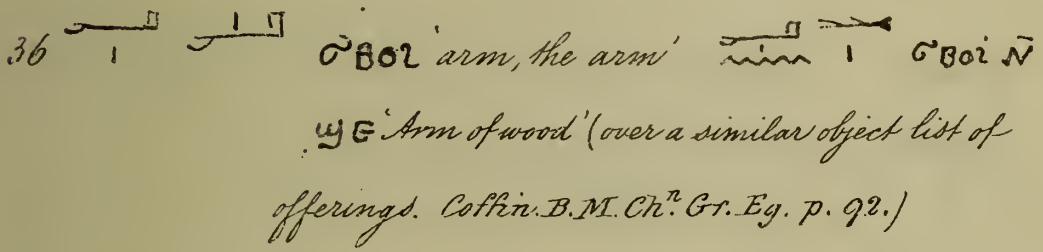 36 𓂝𓏤 𓂝𓏤 ϭⲃⲟⲓ 'arm, the arm' 𓂝𓈖 𓆱𓏤 ϭⲃⲟⲓ ⲛ̄
ϣⲉ 'Arm of wood' (over a similar object list of
offerings. Coffin. B.M. Chⁿ. Gr. Eg. p. 92.)